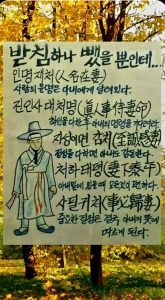 받침하나 뺐을 뿐인데...
인명재처(人名在妻)
사람의 운명은 아내에게 달려있다.
진인사대처명(盡人事待妻命)
최선을 다한 후 아내의 명령을 기다려라
지성이면 감처(至誠感妻)
정성을 다하면 아내도 감동한다.
처하태평(妻下泰平)
아내 밑에 있을 때 모든 것이 편하다.
사필귀처(事必歸妻)
중요한 결정은 결국 아내의 뜻에
따르게 된다.